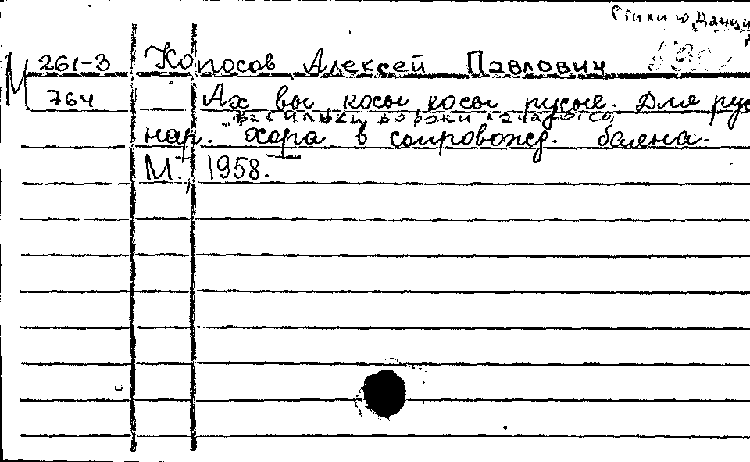 Стихи Ю. Данци
М 261-3 Копосов Алексей Павлович
764 Ах вы, косы, косы русые. Для рус
нар. хора в сопровожд. баяна.
М., 1958.